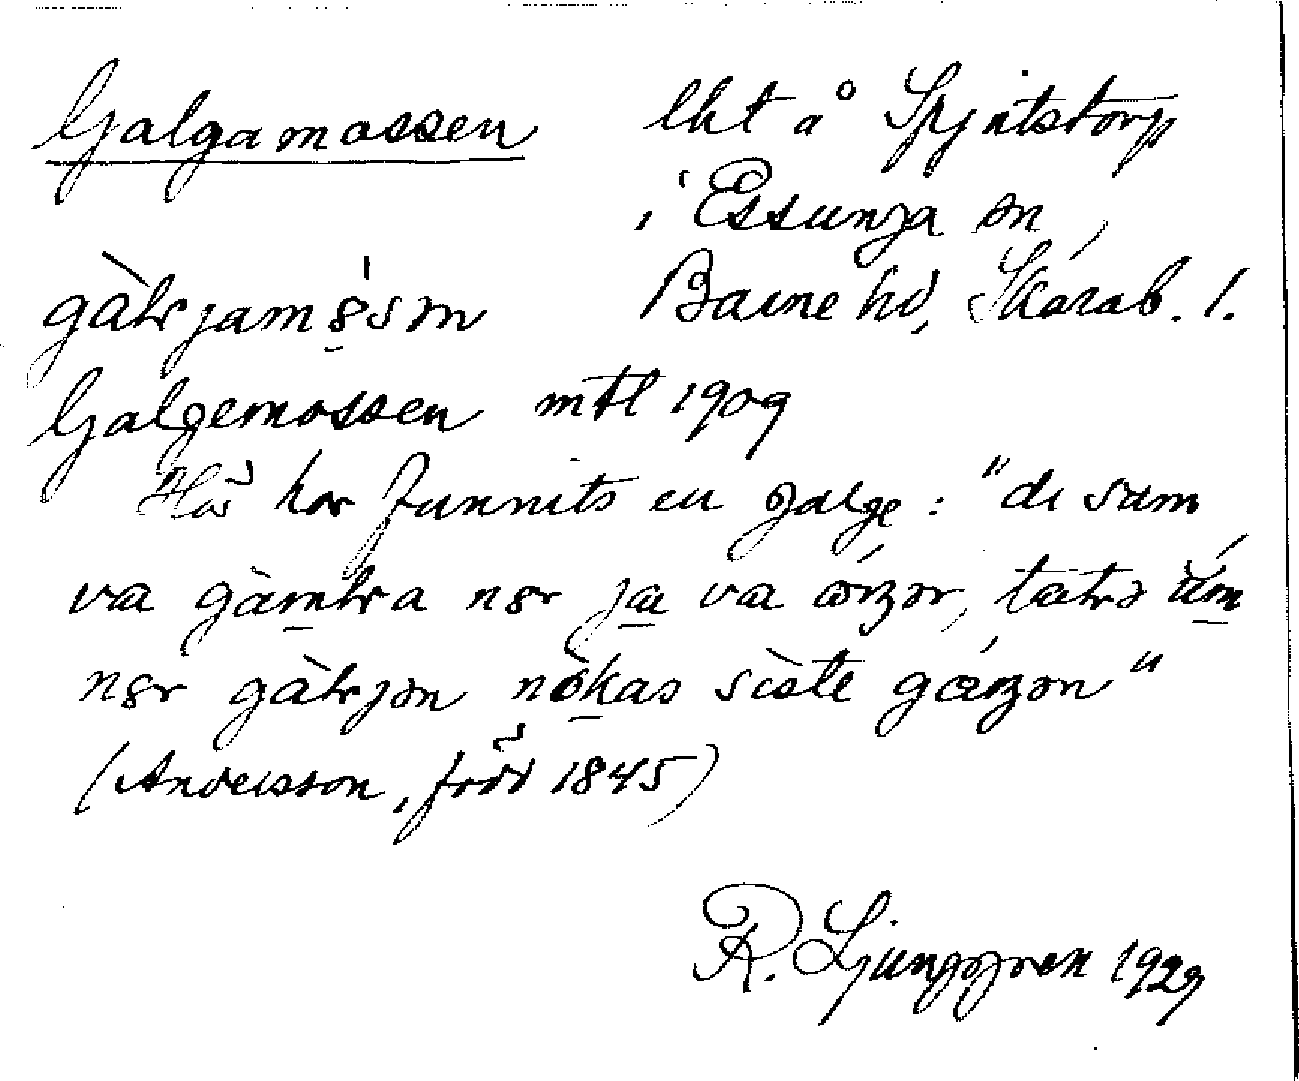 Galgamossen lht å Spjutstorp
i Essunga sn,
gàlrjamǫ̀sәn Barne hd, Skarab. l.
Galgemossen mtl 1909
Här har funnits en galge: "di sum
va gàmlra nәr ja va or, talrә
nәr gàlrjәn nòkas siste gә́ŋәn"
(Andersson, född 1845)
R. Ljunggren 1929